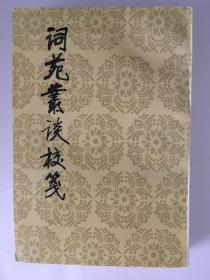 词苑叢谈校笺